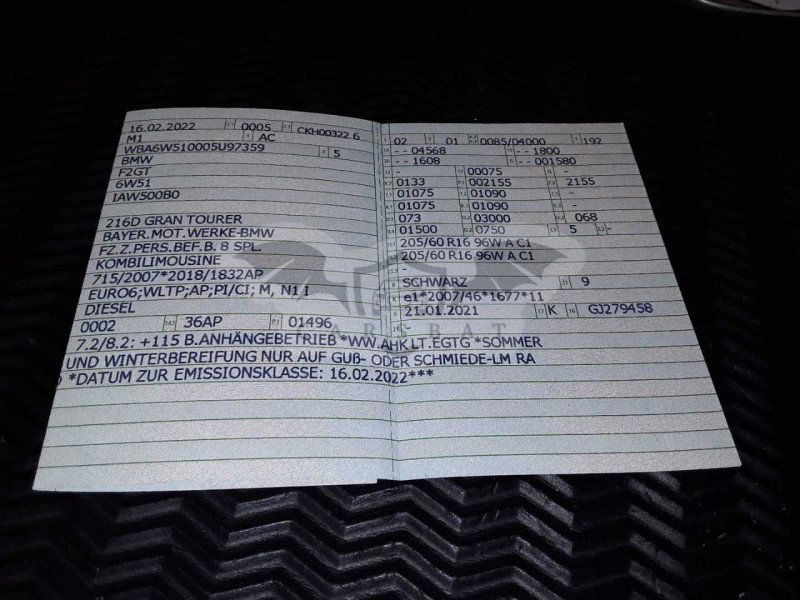 16.02.2022 0005 CKH00322 6
M1 AC
WBA6W510005U97359 5
BMW
F2GT
6W51
IAW500B0
216D GRAN TOURER
BAYER.MOT.WERKE-BMW
FZ.Z.PERS.BEF.B. 8 SPL.
KOMBILIMOUSINE
715/2007*2018/1832AP
EURO6;WLTP;AP;PI/CI; M, N1 I
DIESEL
0002 36AP 01496
7.2/8.2: +115 B.ANHÄNGEBETRIEB *WW.AHK LT.EGTG *SOMMER
UND WINTERBEREIFUNG NUR AUF GUß- ODER SCHMIEDE-LM RA
*DATUM ZUR EMISSIONSKLASSE: 16.02.2022***
02 01 0085/04000 192
- - 04568 - - 1800
- - 1608 - - 001580
- 00075 -
0133 002155 2155
01075 01090 -
01075 01090 -
073 03000 068
01500 0750 5 -
205/60 R16 96W A C1
205/60 R16 96W A C1
-
SCHWARZ 9
e1*2007/46*1677*11
21.01.2021 K GJ279458
-